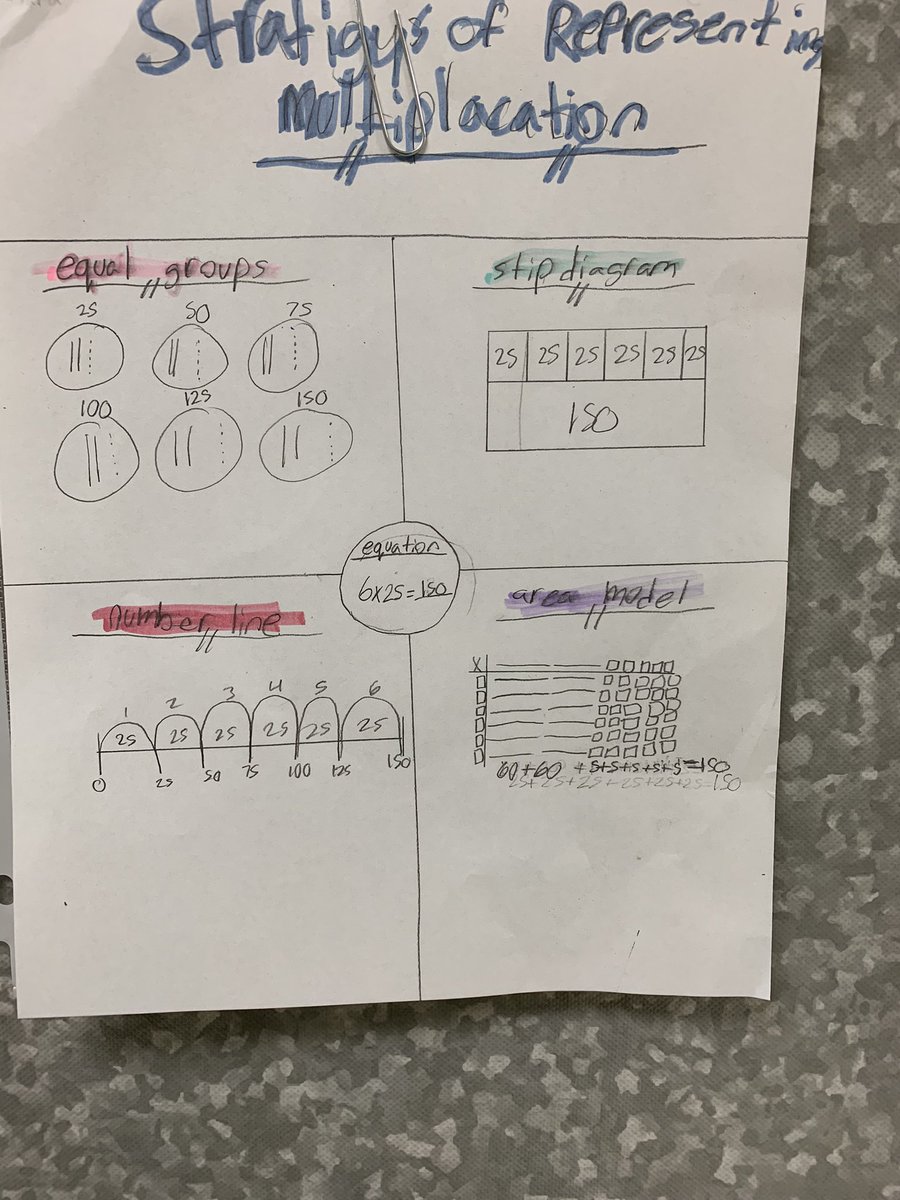 Stratigys of Representing
Multiplacation
equal groups
25 50 75
100 125 150
stip diagram
25 25 25 25 25 25
150
equation
6x25=150
number line
1 2 3 4 5 6
25 25 25 25 25 25
0 25 50 75 100 125 150
area model
X
60+60 +5+5+5+5+5=150
25+25+25+25+25+25=150